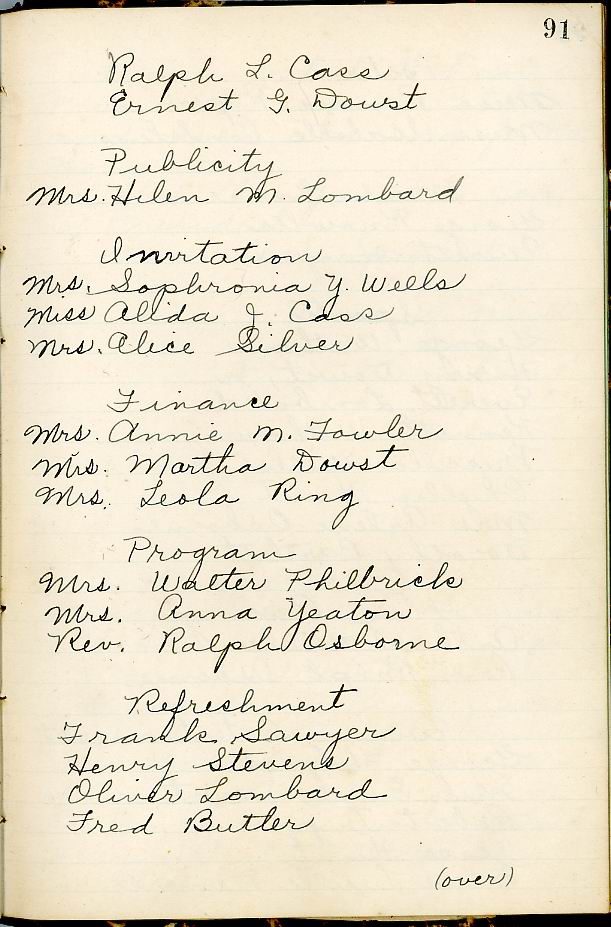 91
Ralph L. Cass
Ernest G. Dowst
Publicity
Mrs. Helen M. Lombard
Invitation
Mrs. Sophronia Y. Wells
Miss Alida J. Cass
Mrs. Alice Silver
Finance
Mrs. Annie M. Fowler
Mrs. Martha Dowst
Mrs. Leola Ring
Program
Mrs. Walter Philbrick
Mrs. Anna Yeaton
Rev. Ralph Osborne
Refreshment
Frank Sawyer
Henry Stevens
Oliver Lombard
Fred Butler
(over)